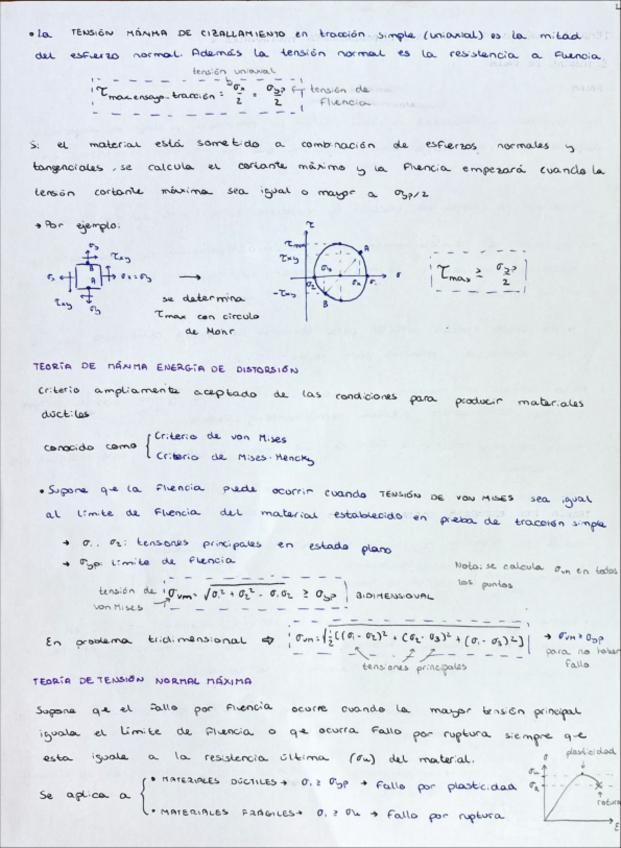 • La TENSIÓN MÁXIMA DE CIZALLAMIENTO en tracción simple (uniaxial) es la mitad
del esfuerzo normal. Además la tensión normal es la resistencia a fluencia.
tensión uniaxial
τmax.ensayo.tracción = σx/2 = σyp/2
tensión de
fluencia
Si el material está sometido a combinación de esfuerzos normales y
tangenciales, se calcula el cortante máximo y la fluencia empezará cuando la
tensión cortante máxima sea igual o mayor a σyp/2
→ Por ejemplo:
σy
τxy
B
A
τxy
σy
→
se determina
τmax con círculo
de Mohr
τ
τmax
τxy
-τxy
A
B
σ
τmax ≥ σyp/2
TEORÍA DE MÁXIMA ENERGÍA DE DISTORSIÓN
Criterio ampliamente aceptado de las condiciones para producir materiales
dúctiles
conocido como
Criterio de von Mises
Criterio de Mises-Hencky
• Supone que la fluencia puede ocurrir cuando TENSIÓN DE VON MISES sea igual
al límite de fluencia del material establecido en prueba de tracción simple
→ σ1, σ2: tensiones principales en estado plano
→ σyp: límite de fluencia
Nota: se calcula σvm en todos
los puntos
tensión de
von Mises
σvm = √σ1² + σ2² - σ1σ2 ≥ σyp
BIDIMENSIONAL
En problema tridimensional ⇒ σvm = √½[(σ1-σ2)² + (σ2-σ3)² + (σ1-σ3)²]
→ σvm > σyp
para no haber
fallo
tensiones principales
TEORÍA DE TENSIÓN NORMAL MÁXIMA
Supone que el fallo por fluencia ocurre cuando la mayor tensión principal
iguala el límite de fluencia o que ocurra fallo por ruptura siempre que
esta iguale a la resistencia última (σu) del material.
Se aplica a
• MATERIALES DÚCTILES → σ1 ≥ σyp → fallo por plasticidad
• MATERIALES FRÁGILES → σ1 ≥ σu → fallo por ruptura
plasticidad
σ
rotura
ε